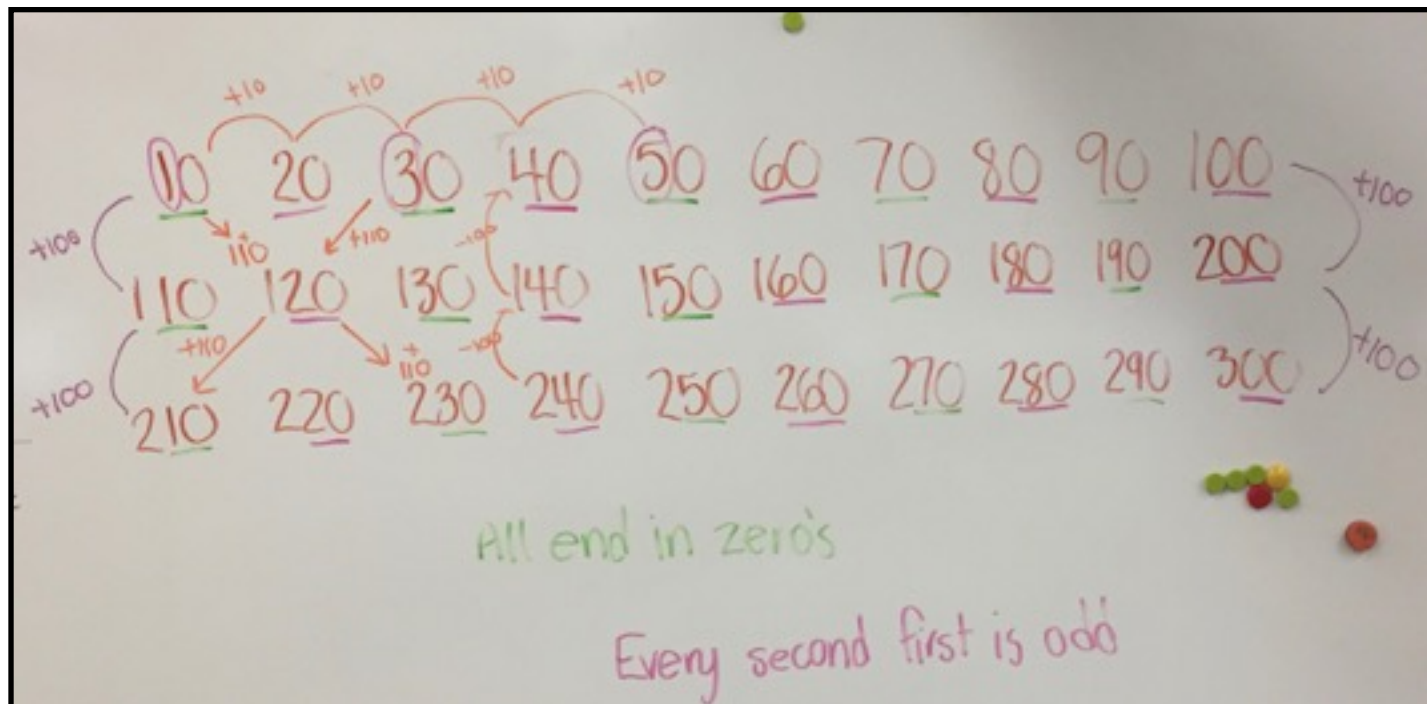 +10 +10 +10 +10
10 20 30 40 50 60 70 80 90 100
+100 +110 +110 -100 +100
110 120 130 140 150 160 170 180 190 200
+100 +110 +110 -100 +100
210 220 230 240 250 260 270 280 290 300
All end in zero's
Every second first is odd